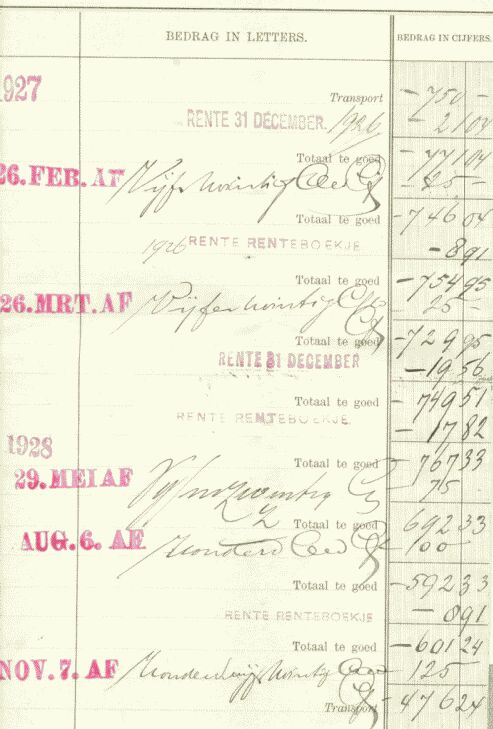 BEDRAG IN LETTERS. BEDRAG IN CIJFERS.
1927
Transport - 750 -
RENTE 31 DECEMBER. 1926 - 21 04
Totaal te goed - 771 04
26. FEB. AF Vijf - 25 -
Totaal te goed - 746 04
1926 RENTE RENTEBOEKJE - 8 91
Totaal te goed - 754 95
26. MRT. AF Vijfentwintig 25 -
Totaal te goed - 729 95
RENTE 31 DECEMBER - 19 56
Totaal te goed - 749 51
RENTE RENTEBOEKJE. - 17 82
1928
Totaal te goed - 767 33
29. MEI AF 75 -
Totaal te goed 692 33
AUG. 6. AF Honderd 100 -
Totaal te goed - 592 33
RENTE RENTEBOEKJE - 8 91
Totaal te goed - 601 24
NOV. 7. AF 125 -
Transport - 476 24